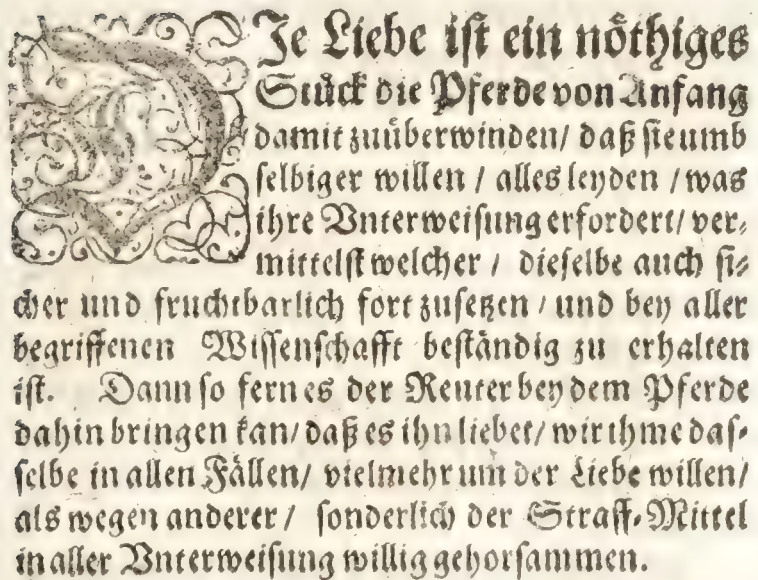 DJe Liebe ist ein nöthiges
Stück die Pferde von Anfang
damit zuüberwinden/ daß sie umb
selbiger willen / alles leyden / was
ihre Vnterweisung erfordert/ ver⸗
mittelst welcher / dieselbe auch si⸗
cher und fruchtbarlich fort zusetzen / und bey aller
begriffenen Wissenschafft beständig zu erhalten
ist. Dann so fern es der Reuter bey dem Pferde
dahin bringen kan/ daß es ihn liebet/ wirt ihme das⸗
selbe in allen Fällen/ vielmehr um der Liebe willen/
als wegen anderer / sonderlich der Straff⸗Mittel
in aller Vnterweisung willig gehorsammen.